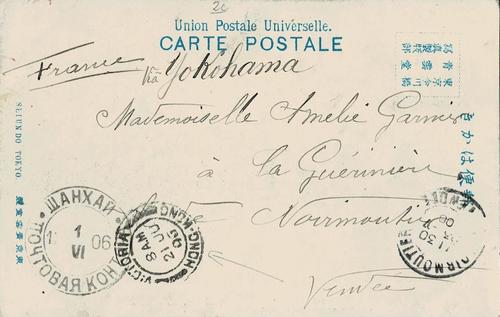 2c
Union Postale Universelle.
CARTE POSTALE
France
via Yokohama
Mademoiselle Amélie Garnier
à la Guérinière
Noirmoutier
Vendée
きかは便郵
SEIUNDO TOKYO.
ШАНХАЙ
1
VI
06
ПОЧТОВАЯ КОНТ
VICTORIA HONG-KONG
8 AM
21 JU
06
NOIRMOUTIER
11 30